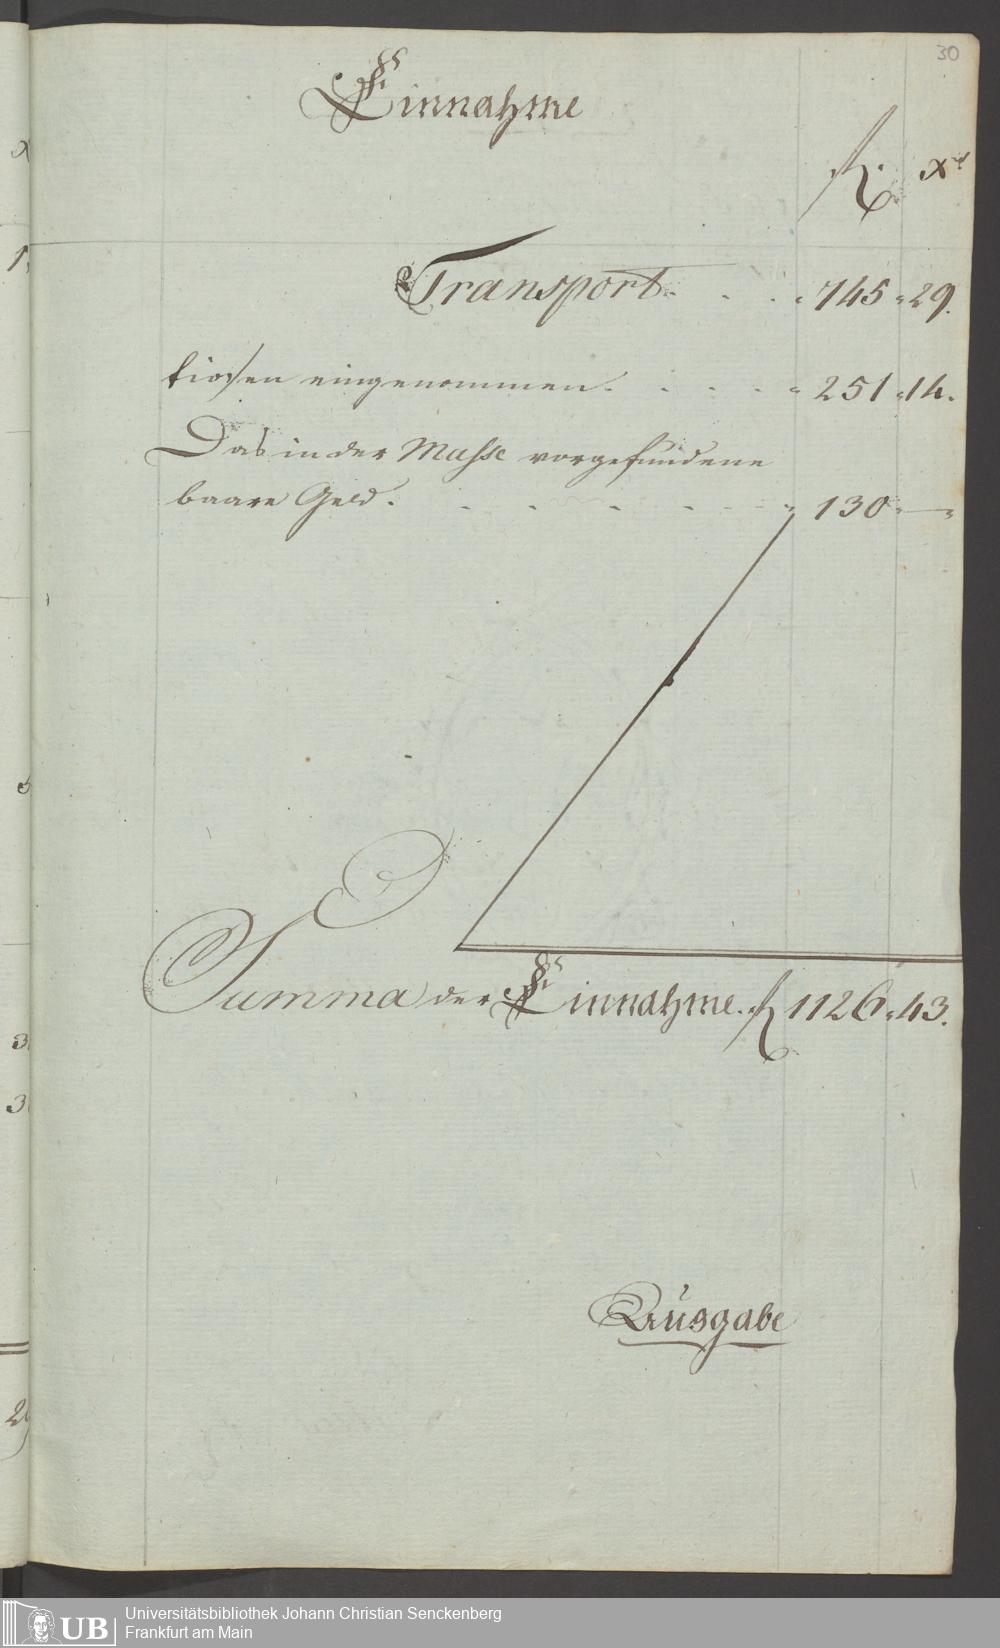 30
Einnahme
fl. Xr
Transport. . . . 745 " 29.
eingenommen. . . . . 251 " 14.
Das in der Masse vorgefundene
baare Geld. . . . . . . 130 " — "
Summa der Einnahme. fl 1126 " 43.
Ausgabe
UB
Universitätsbibliothek Johann Christian Senckenberg
Frankfurt am Main